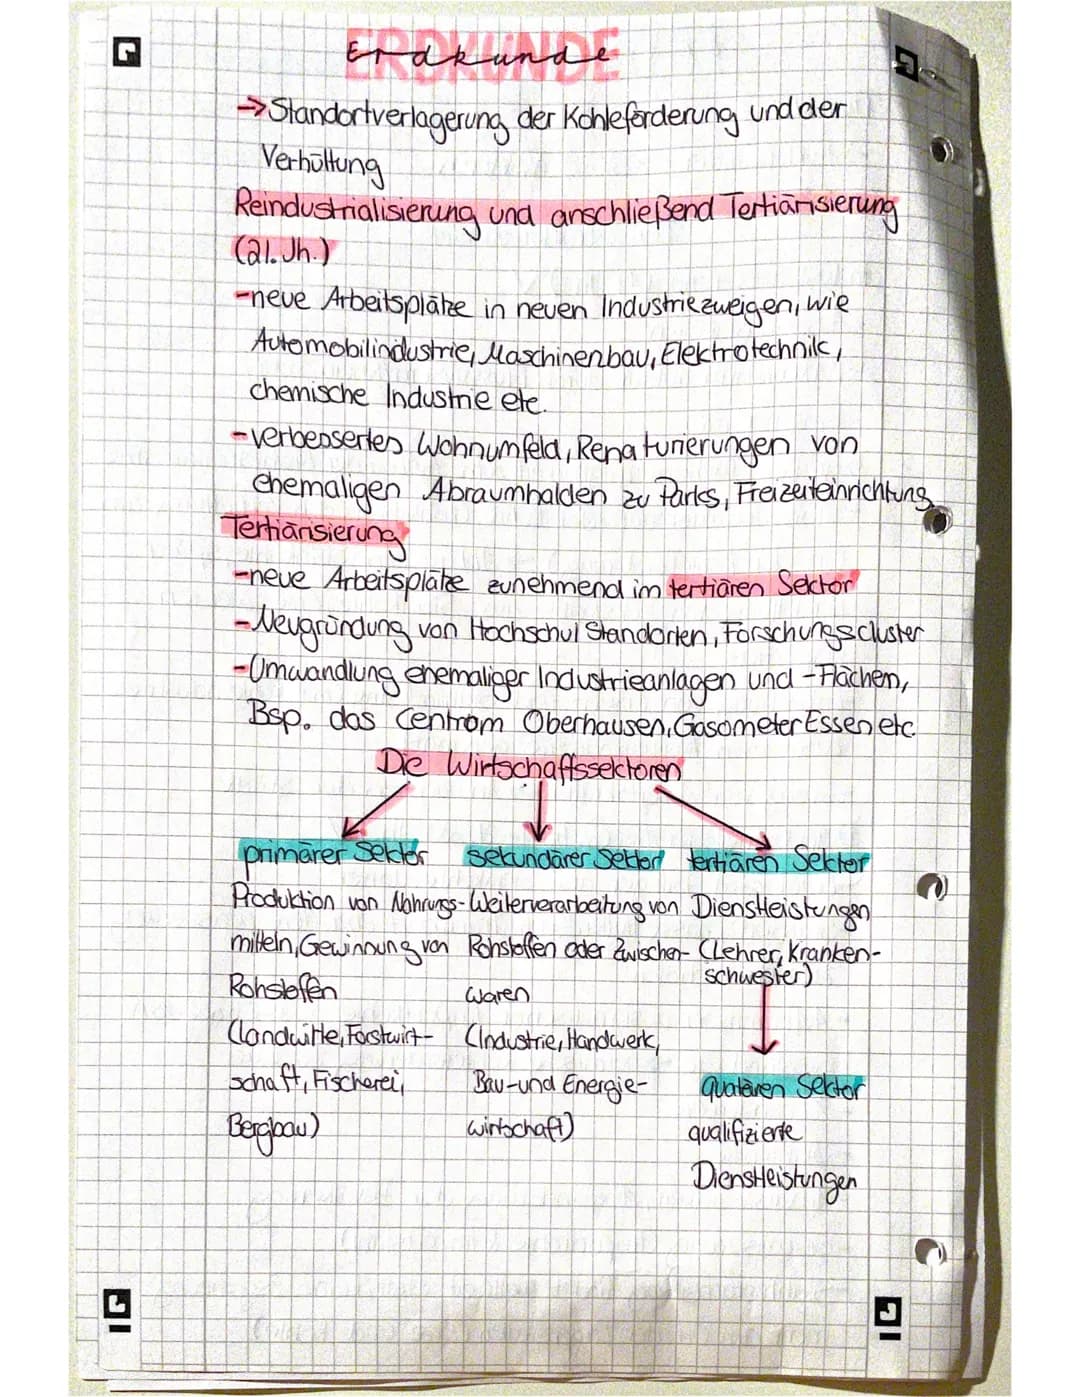 Erdkunde
→ Standortverlagerung der Kohleförderung und der
Verhüttung
Reindustrialisierung und anschließend Tertiärisierung
(21. Jh.)
- neue Arbeitsplätze in neuen Industriezweigen, wie
Automobilindustrie, Maschinenbau, Elektrotechnik,
chemische Industrie etc.
- verbessertes Wohnumfeld, Renaturierungen von
ehemaligen Abraumhalden zu Parks, Freizeiteinrichtung
Tertiärisierung
- neue Arbeitsplätze zunehmend im tertiären Sektor
- Neugründung von Hochschul Standorten, Forschungscluster
- Umwandlung ehemaliger Industrieanlagen und -Flächen,
Bsp. das Centrom Oberhausen, Gasometer Essen etc.
Die Wirtschaftssektoren
primärer Sektor sekundärer Sektor tertiären Sektor
Produktion von Nahrungs- Weiterverarbeitung von Dienstleistungen
mitteln, Gewinnung von Rohstoffen oder Zwischen- (Lehrer, Kranken-
schwester)
Rohstoffen waren
(Landwirte, Forstwirt- (Industrie, Handwerk,
schaft, Fischerei, Bau- und Energie- quatären Sektor
Bergbau) wirtschaft) qualifizierte
Dienstleistungen